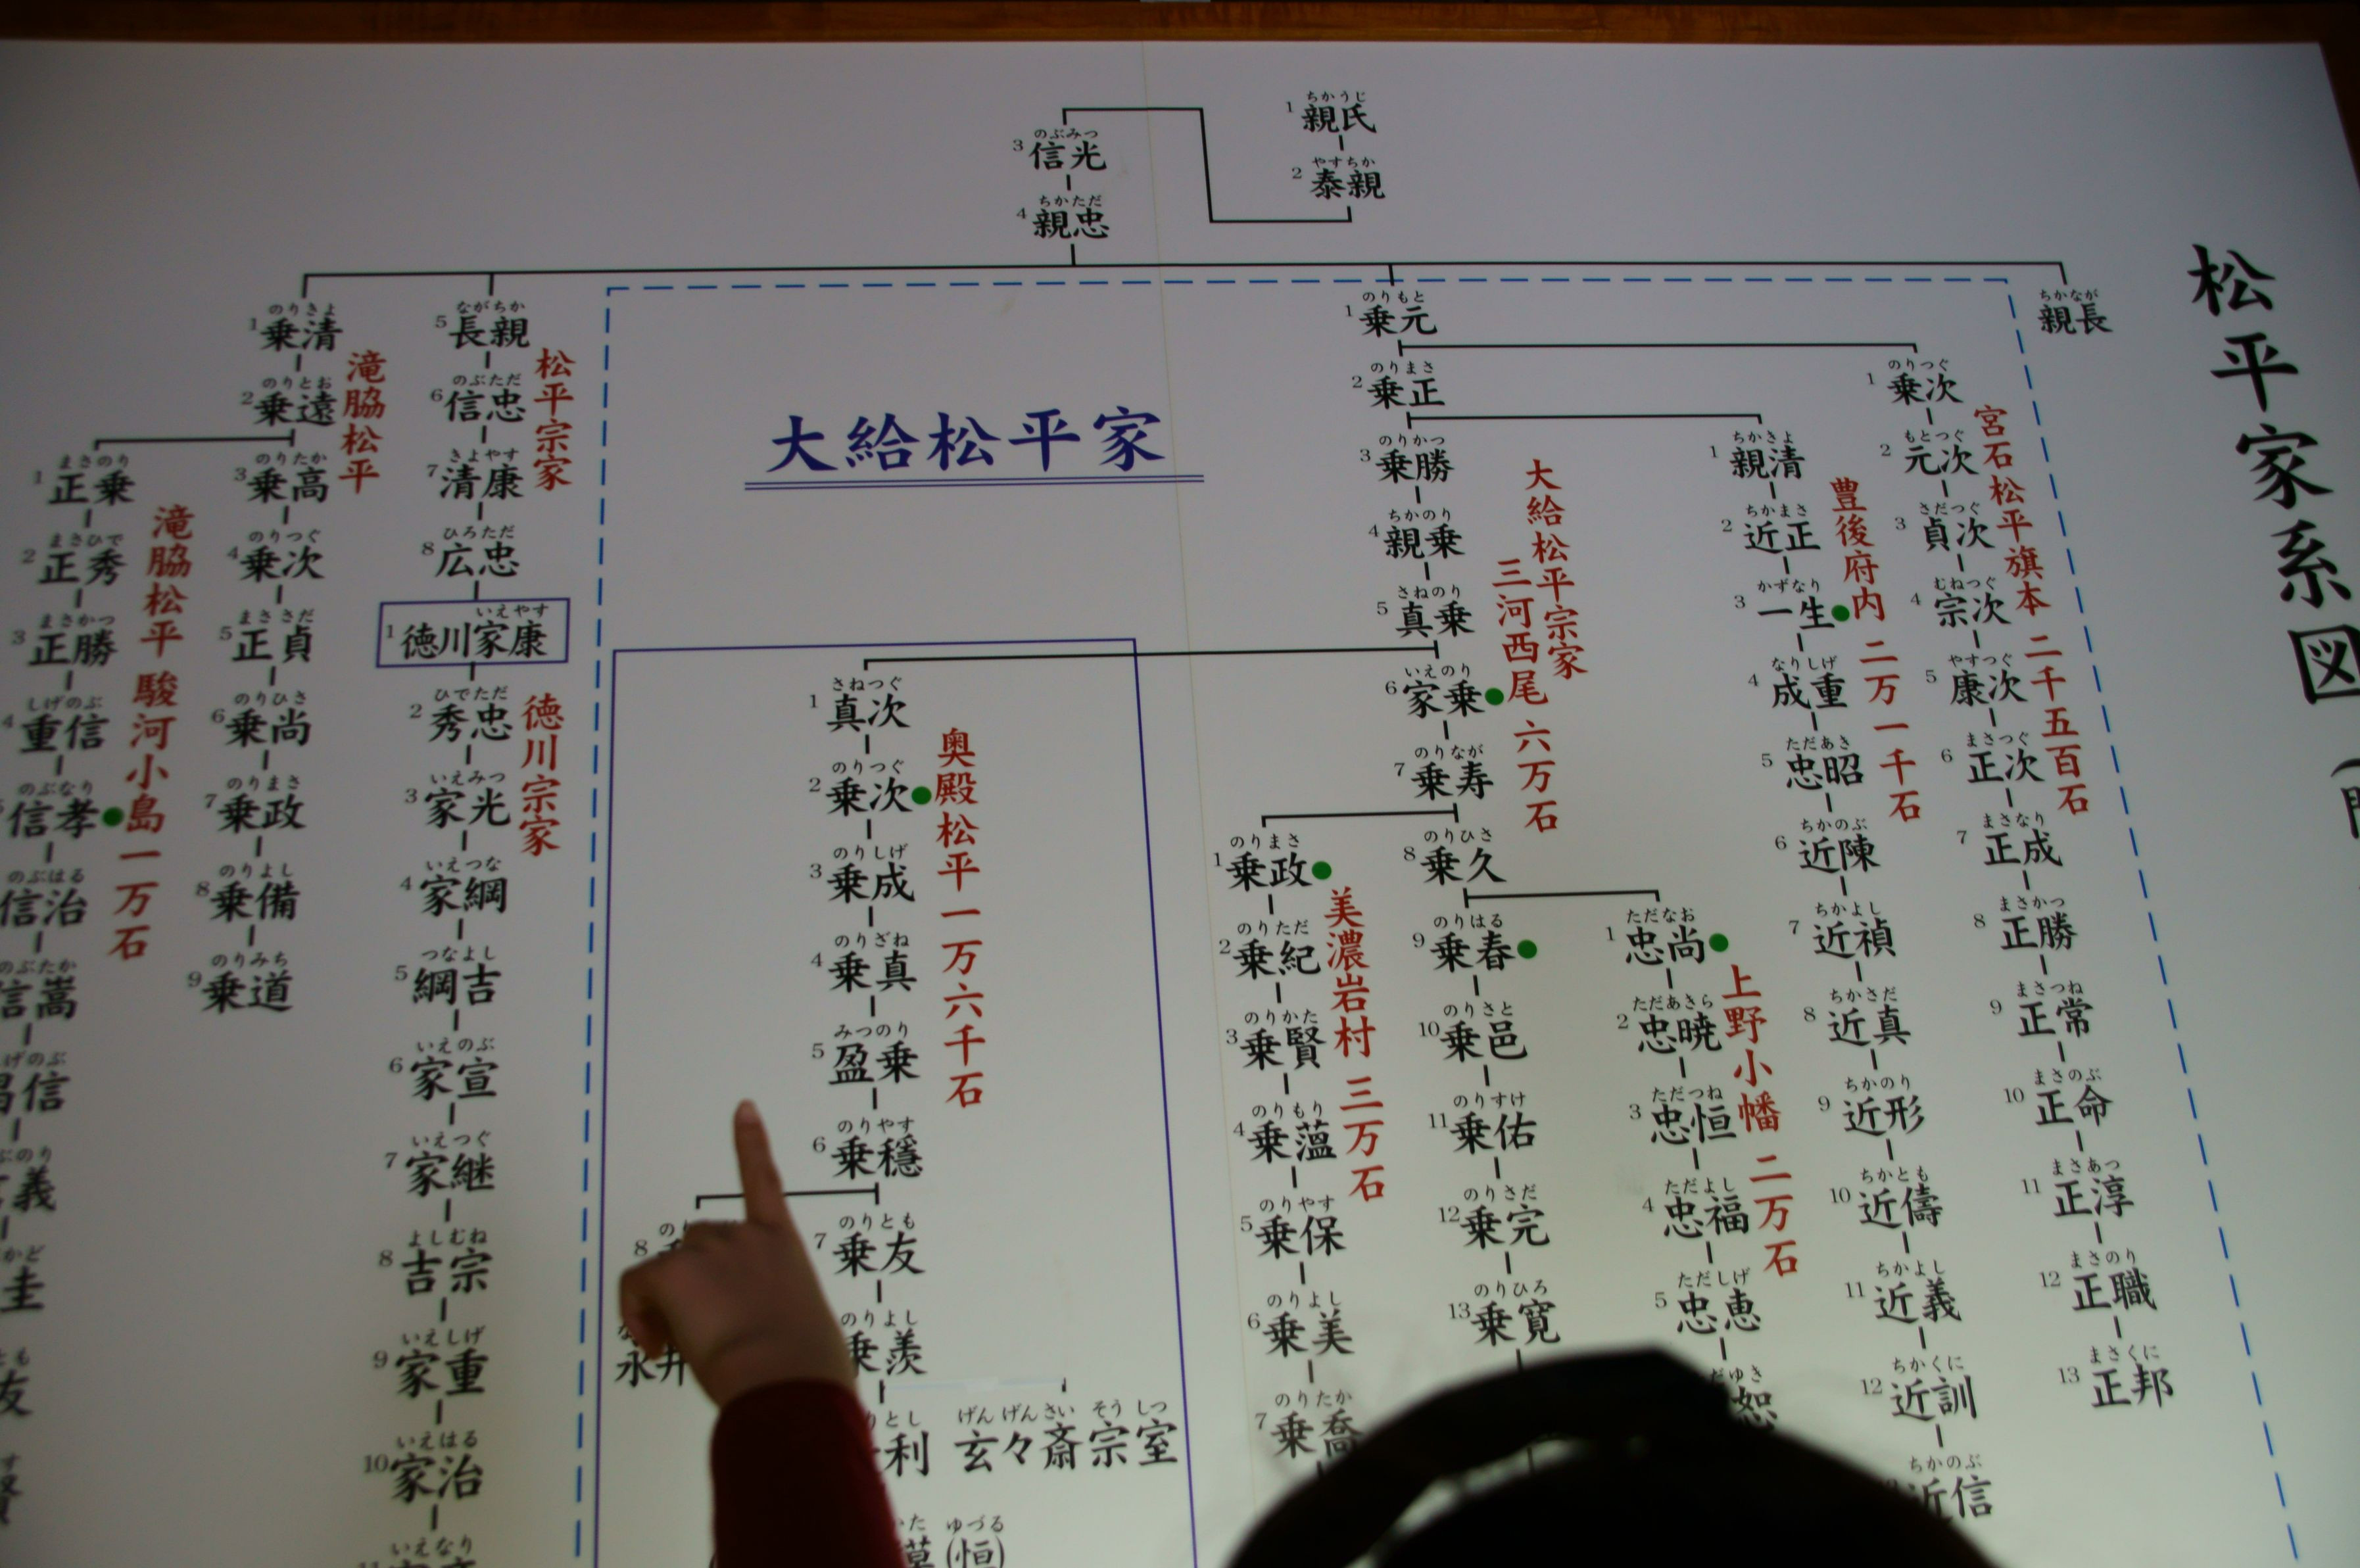 松平家系図
ちかうじ
1 親氏
やすちか
2 泰親
のぶみつ
3 信光
ちかただ
4 親忠
ちかなが
親長
のりもと
1 乗元
のりつぐ
1 乗次
宮石松平旗本 二千五百石
もとつぐ
2 元次
さだつぐ
3 貞次
むねつぐ
4 宗次
やすつぐ
5 康次
まさつぐ
6 正次
まさなり
7 正成
まさかつ
8 正勝
まさつね
9 正常
まさのぶ
10 正命
まさあつ
11 正淳
まさのり
12 正職
まさくに
13 正邦
のりまさ
2 乗正
ちかきよ
1 親清
豊後府内 二万一千石
ちかまさ
2 近正
かずなり
3 一生
なりしげ
4 成重
ただあき
5 忠昭
ちかのぶ
6 近陳
ちかよし
7 近禎
ちかさだ
8 近真
ちかのり
9 近形
ちかとも
10 近儔
ちかよし
11 近義
ちかくに
12 近訓
ちかのぶ
近信
大給松平宗家
三河西尾 六万石
のりかつ
3 乗勝
ちかのり
4 親乗
さねのり
5 真乗
いえのり
6 家乗
のりなが
7 乗寿
のりひさ
8 乗久
ただなお
1 忠尚
上野小幡 二万石
ただあきら
2 忠暁
ただつね
3 忠恒
ただよし
4 忠福
ただしげ
5 忠恵
だゆき
恕
のりはる
9 乗春
のりさと
10 乗邑
のりすけ
11 乗佑
のりさだ
12 乗完
のりひろ
13 乗寛
のりまさ
1 乗政
美濃岩村 三万石
のりただ
2 乗紀
のりかた
3 乗賢
のりもり
4 乗薀
のりやす
5 乗保
のりよし
6 乗美
のりたか
7 乗喬
大給松平家
さねつぐ
1 真次
奥殿松平 一万六千石
のりつぐ
2 乗次
のりしげ
3 乗成
のりざね
4 乗真
みつのり
5 盈乗
のりやす
6 乗穏
のりとも
7 乗友
8
永井
のりよし
乗羨
りとし
利
げんげんさい そうしつ
玄々斎宗室
ゆづる
(恒)
ながちか
5 長親
松平宗家
のぶただ
6 信忠
きよやす
7 清康
ひろただ
8 広忠
いえやす
1 徳川家康
徳川宗家
ひでただ
2 秀忠
いえみつ
3 家光
いえつな
4 家綱
つなよし
5 綱吉
いえのぶ
6 家宣
いえつぐ
7 家継
よしむね
8 吉宗
いえしげ
9 家重
いえはる
10 家治
いえなり
のりきよ
1 乗清
滝脇松平
のりとお
2 乗遠
のりたか
3 乗高
のりつぐ
4 乗次
まささだ
5 正貞
のりひさ
6 乗尚
のりまさ
7 乗政
のりよし
8 乗備
のりみち
9 乗道
まさのり
1 正乗
滝脇松平 駿河小島 一万石
まさひで
2 正秀
まさかつ
3 正勝
しげのぶ
4 重信
のぶなり
信孝
のぶはる
信治
のぶたか
信嵩
げのぶ
昌信
ぶのり
義
かど
圭
とも
友